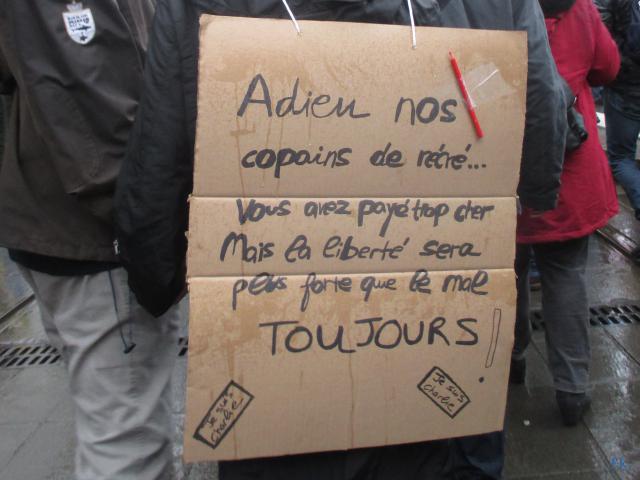 Adieu nos
copains de récré...
Vous avez payé trop cher
Mais la liberté sera
plus forte que le mal
TOUJOURS !
Je suis
Charlie
Je suis
Charlie